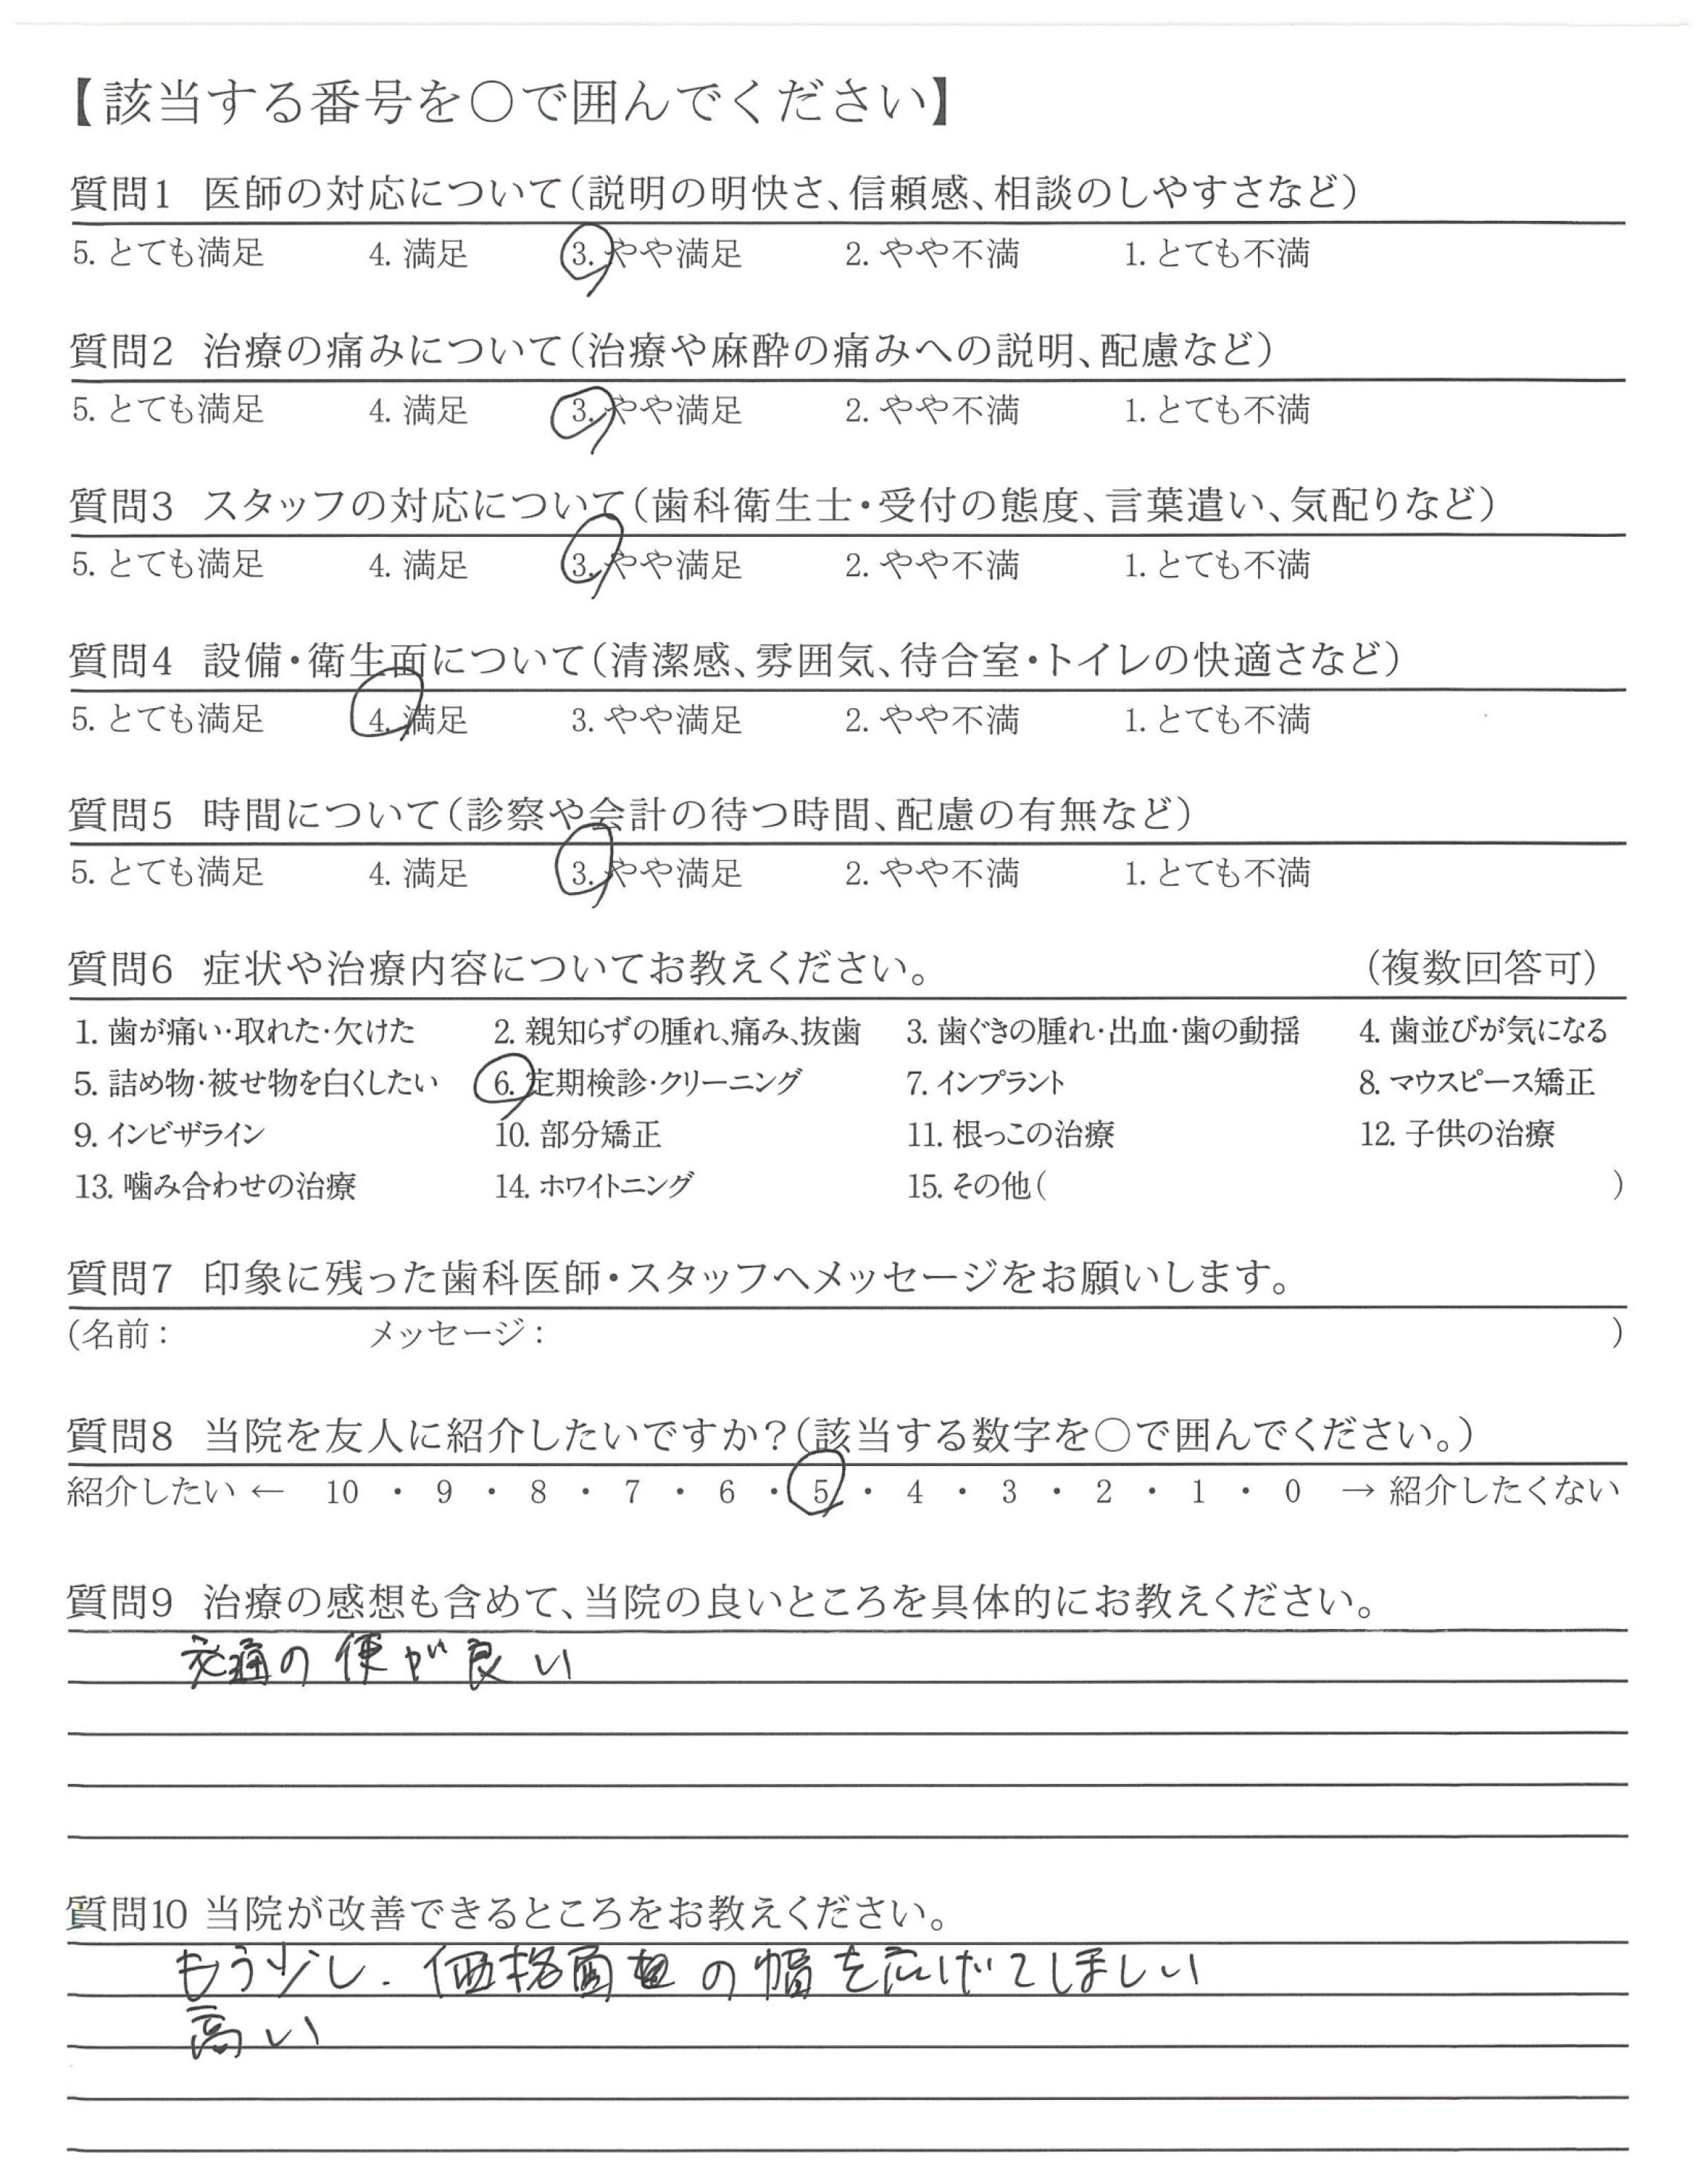 【該当する番号を○で囲んでください】
質問1 医師の対応について(説明の明快さ、信頼感、相談のしやすさなど)
5. とても満足 4. 満足 3. やや満足 2. やや不満 1. とても不満
質問2 治療の痛みについて(治療や麻酔の痛みへの説明、配慮など)
5. とても満足 4. 満足 3. やや満足 2. やや不満 1. とても不満
質問3 スタッフの対応について(歯科衛生士・受付の態度、言葉遣い、気配りなど)
5. とても満足 4. 満足 3. やや満足 2. やや不満 1. とても不満
質問4 設備・衛生面について(清潔感、雰囲気、待合室・トイレの快適さなど)
5. とても満足 4. 満足 3. やや満足 2. やや不満 1. とても不満
質問5 時間について(診察や会計の待つ時間、配慮の有無など)
5. とても満足 4. 満足 3. やや満足 2. やや不満 1. とても不満
質問6 症状や治療内容についてお教えください。 (複数回答可)
1. 歯が痛い・取れた・欠けた 2. 親知らずの腫れ、痛み、抜歯 3. 歯ぐきの腫れ・出血・歯の動揺 4. 歯並びが気になる
5. 詰め物・被せ物を白くしたい 6. 定期検診・クリーニング 7. インプラント 8. マウスピース矯正
9. インビザライン 10. 部分矯正 11. 根っこの治療 12. 子供の治療
13. 噛み合わせの治療 14. ホワイトニング 15. その他( )
質問7 印象に残った歯科医師・スタッフへメッセージをお願いします。
(名前: メッセージ: )
質問8 当院を友人に紹介したいですか?(該当する数字を○で囲んでください。)
紹介したい ← 10 ・ 9 ・ 8 ・ 7 ・ 6 ・ 5 ・ 4 ・ 3 ・ 2 ・ 1 ・ 0 → 紹介したくない
質問9 治療の感想も含めて、当院の良いところを具体的にお教えください。
交通の便が良い
質問10 当院が改善できるところをお教えください。
もう少し、価格面の幅を広げてほしい
高い